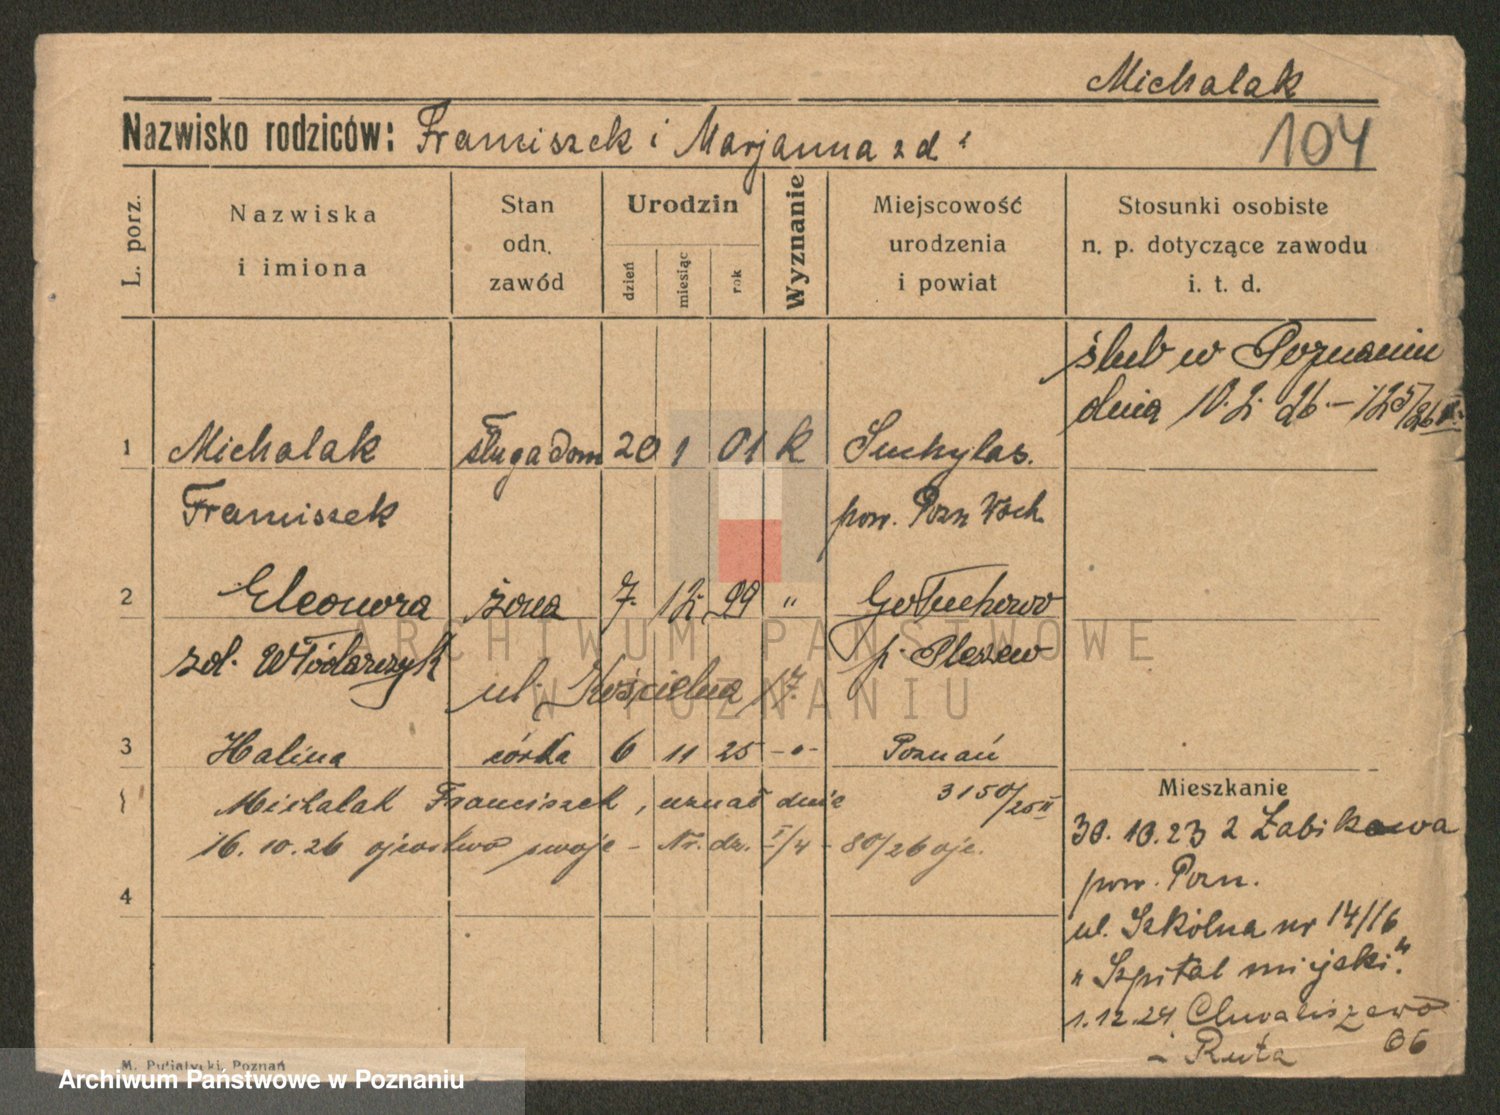 Michalak
Nazwisko rodziców: Franciszek i Marjanna zd
104
L. porz.
Nazwiska
i imiona
Stan
odn.
zawód
Urodzin
dzień
miesiąc
rok
Wyznanie
Miejscowość
urodzenia
i powiat
Stosunki osobiste
n. p. dotyczące zawodu
i. t. d.
ślub w Poznaniu
dnia 10. 2. 26 –
1 Michalak sługa dom 20 1 01 k Suchylas.
Franciszek pow. Pozn. Wsch.
2 Eleonora żona 7. 12. 99 " Gołuchowo
zd. Włódarczyk p. Pleszew
ul. Kościelna 17.
3 Halina córka 6 11 25 -"- Poznań
Michalak Franciszek, uznał dnia 3150/25 II
16. 10. 26 ojcostwo swoje – Nr. dz. I/4 - 80/26 ojc.
4
Mieszkanie
30. 10. 23 z Żabikowa
pow. Pozn.
ul. Szkolna nr 14/16
"Szpital miejski".
1. 12. 24 Chwaliszewo
66
– Ruta
M. Putiatycki, Poznań
ARCHIWUM PAŃSTWOWE
W POZNANIU
Archiwum Państwowe w Poznaniu